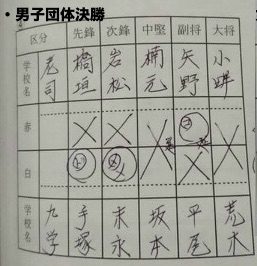 ・男子団体決勝
区分 先鋒 次鋒 中堅 副将 大将
学校名 老司 橋垣 岩松 楠元 矢野 小畔
赤
白
学校名 九学 手塚 末永 坂本 平尾 荒木